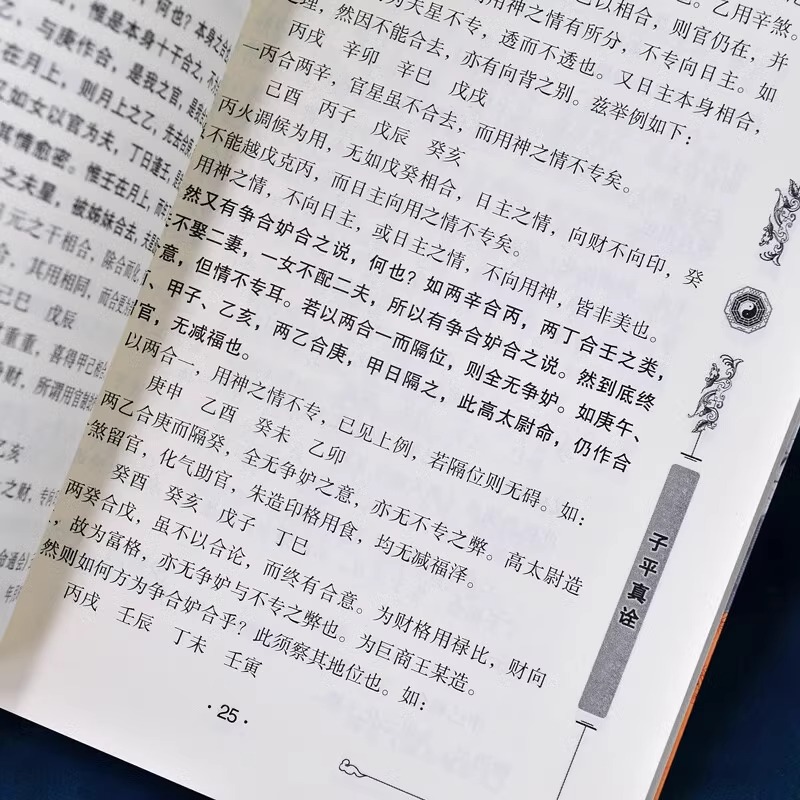 ，何也？本身之合
惟是本身十干合之，不
，与庚作合，是我之官，是我
在月上，则月上之乙，先去合
如女以官为夫，丁日逢壬，是
其情愈密。惟壬在月上，而年
之夫星，被姊妹合去，夫星
元之干相合，除合而化
，其用相同，而合更
己巳 戊辰
重重，喜得甲己
争财，所谓用官制
乙亥
之财，专向
命通会
己以相合，则官仍在，并
乙用辛煞。
为夫星不专，透而不透也。又日主本身相合，
用神之情有所分，不专向日主。如
理，然因不能合去，亦有向背之别。兹举例如下：
丙戌 辛卯 辛巳 戊戌
一丙合两辛，官星虽不合去，而用神之情不专矣。
己酉 丙子 戊辰 癸亥
丙火调候为用，无如戊癸相合，日主之情，向财不向印，癸
不能越戊克丙，而日主向用之情不专矣。
用神之情，不向日主，或日主之情，不向用神，皆非美也。
然又有争合妒合之说，何也？如两辛合丙，两丁合壬之类，
不娶二妻，一女不配二夫，所以有争合妒合之说。然到底终
意，但情不专耳。若以两合一而隔位，则全无争妒。如庚午、
、甲子、乙亥，两乙合庚，甲日隔之，此高太尉命，仍作合
官，无减福也。
以两合一，用神之情不专，已见上例，若隔位则无碍。如：
庚申 乙酉 癸未 乙卯
两乙合庚而隔癸，全无争妒之意，亦无不专之弊。高太尉造
煞留官，化气助官，朱造印格用食，均无减福泽。
癸酉 癸亥 戊子 丁巳
两癸合戊，虽不以合论，而终有合意。为财格用禄比，财向
，故为富格，亦无争妒与不专之弊也。为巨商王某造。
然则如何方为争合妒合乎？此须察其地位也。如：
丙戌 壬辰 丁未 壬寅
· 25 ·
子平真诠